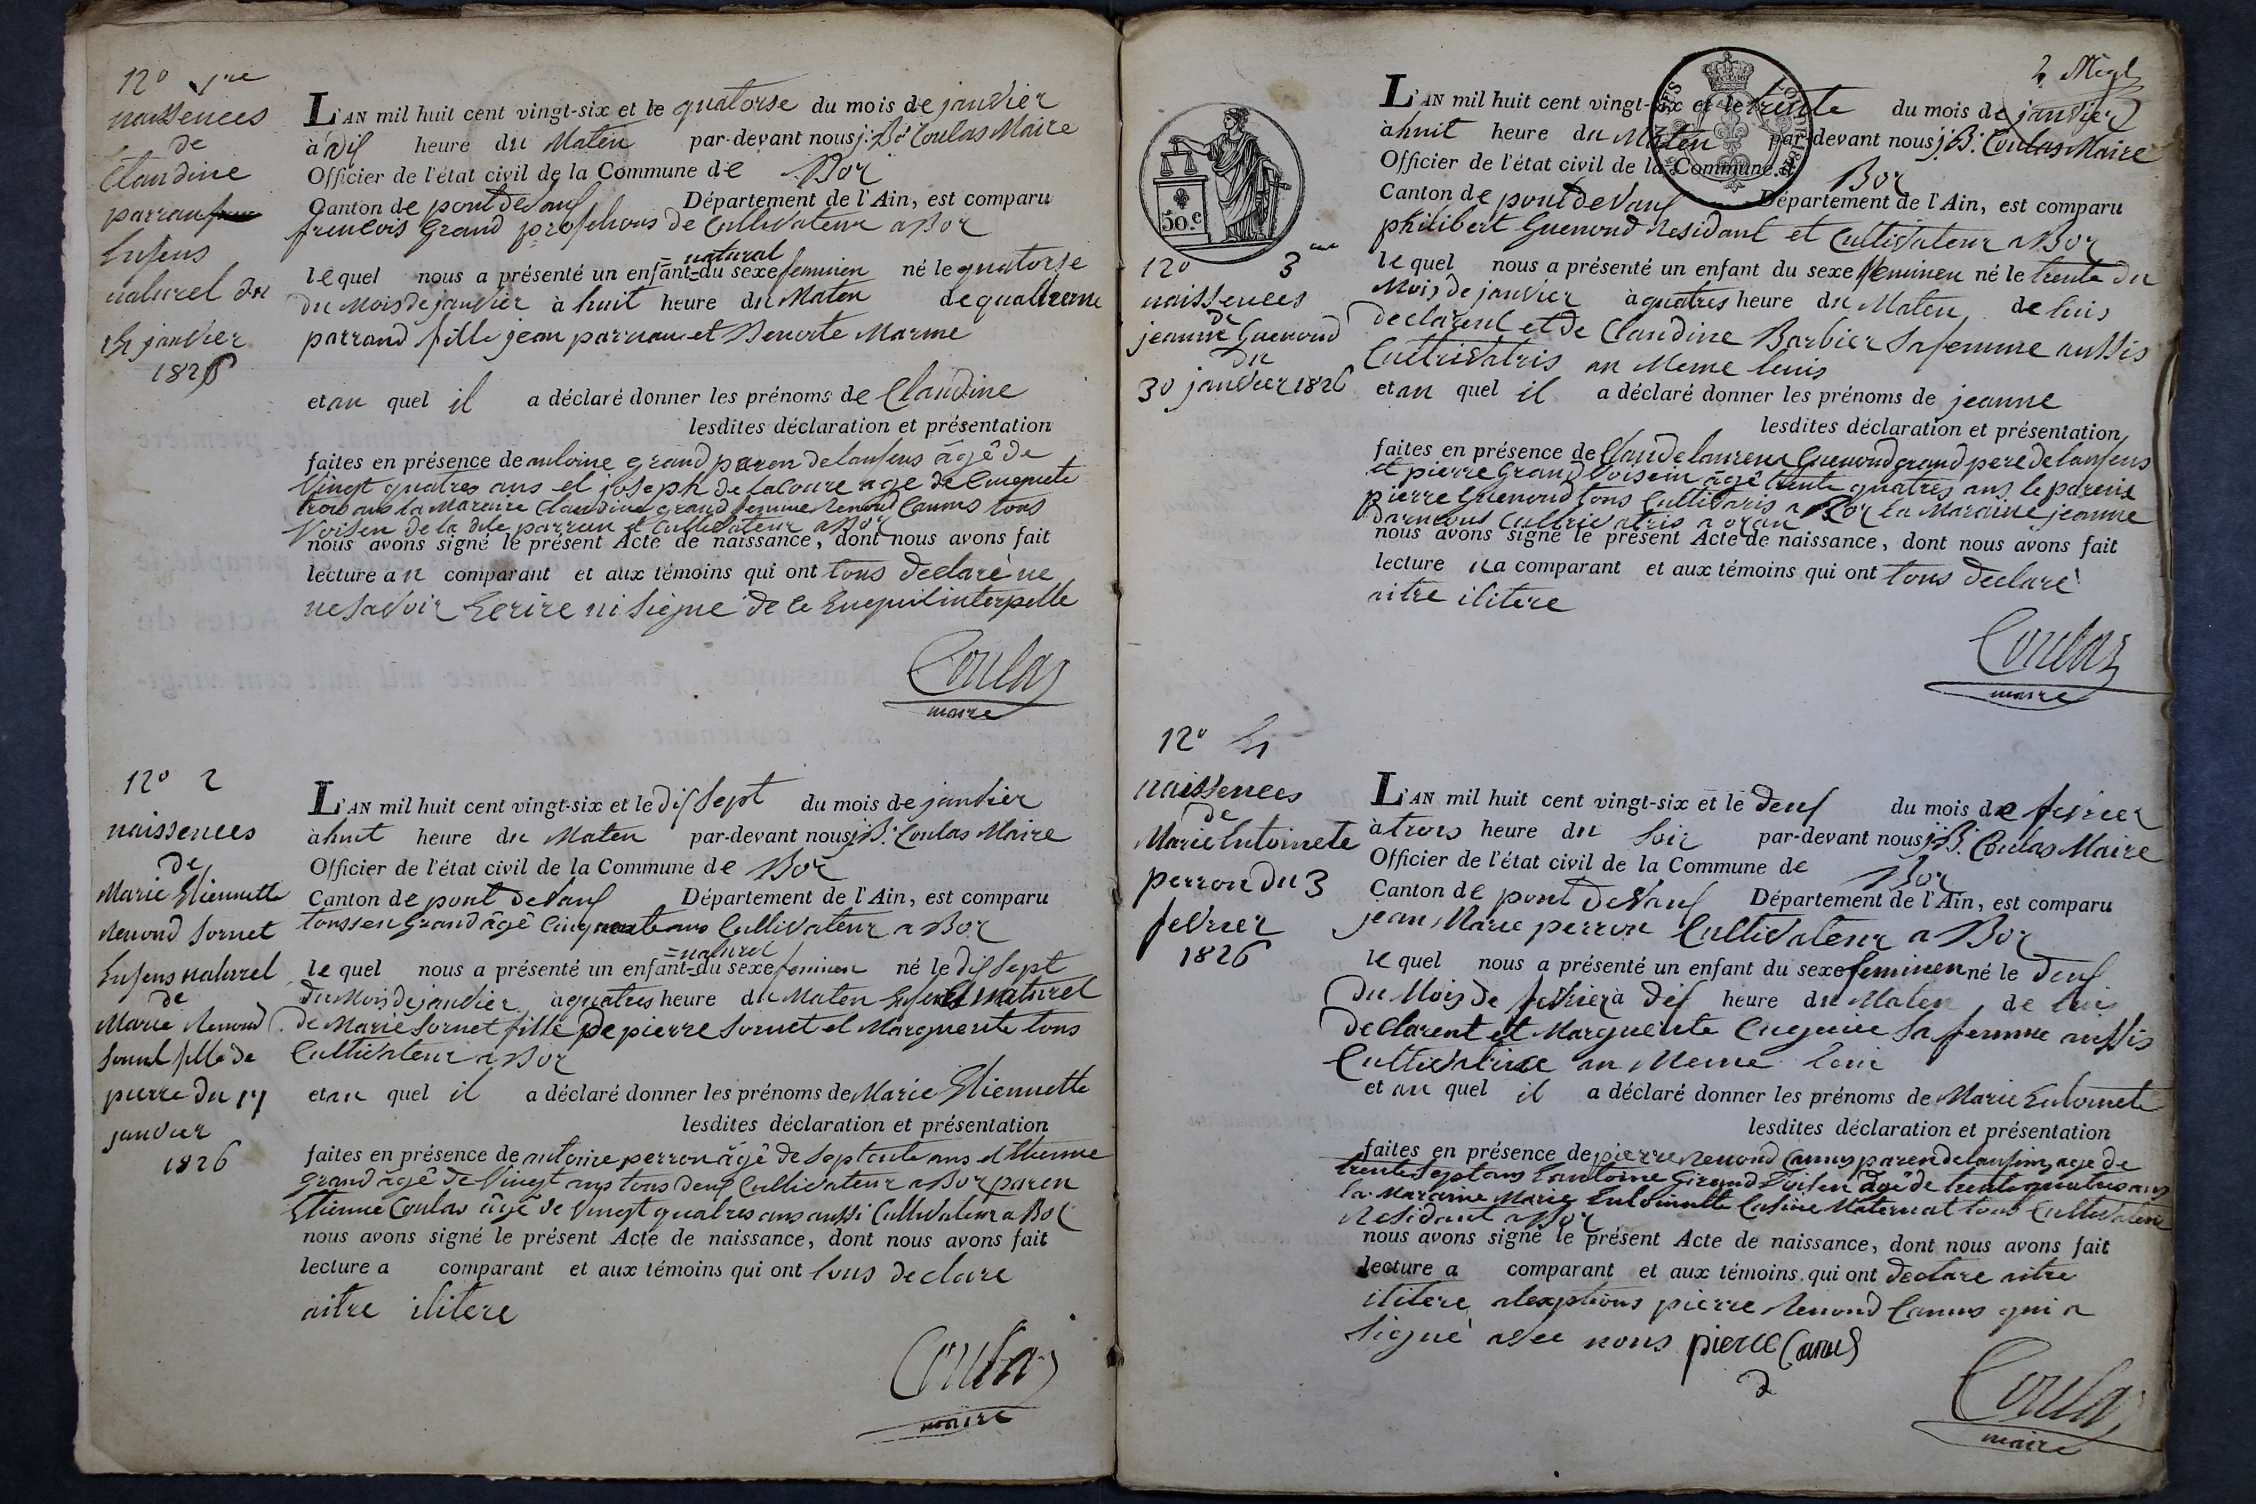 N° 1re
naissences
de
Claudine
parran
Enfens
naturel du
14 janvier
1826
L'AN mil huit cent vingt-six et le quatorse du mois de janvier
à dif heure du Maten par-devant nous j. Bte Coulas Maire
Officier de l'état civil de la Commune de Bor
Canton de pont de Vauf Département de l'Ain, est comparu
frencois Grand profetions de Cultivateur a Bor
= natural
le quel nous a présenté un enfant=du sexe feminen né le quatorse
du Mois de janvier à huit heure du Maten de
parrand fille jean parran et Benoite Marme
et au quel il a déclaré donner les prénoms de Claudine
lesdites déclaration et présentation
faites en présence de antoine grand paren de lanfens âgê de
Vingt quatres ans el joseph de lacoure age de Cinquente
trois ans la Mareine Claudine grand femme Renoud Camus tous
Voisen de la dite parran et Cultivateur a Bor
nous avons signé le présent Acte de naissance, dont nous avons fait
lecture au comparant et aux témoins qui ont tous declaré ne
ne savoir Ecrire ni Signe de ce Enquil interpelle
Coulas
maire
N° 2
naissences
de
Marie Etiennette
Renond Sornet
Enfens naturel
de
Marie Renond
Sornet fille de
pierre du 17
janvier
1826
L'AN mil huit cent vingt-six et le dif Sept du mois de janvier
à huit heure du Maten par-devant nous j.B. Coulas Maire
Officier de l'état civil de la Commune de Bor
Canton de pont de Vauf Département de l'Ain, est comparu
toussen Grand âgê Cinquante ans Cultivateur a Bor
= naturel
le quel nous a présenté un enfant=du sexe feminen né le dif Sept
du Mois de janvier à quatres heure du Maten Enfens Naturel
de Marie Sornet fille de pierre Sornet et Marguerite tous
Cultivateur a Bor
et au quel il a déclaré donner les prénoms de Marie Etiennette
lesdites déclaration et présentation
faites en présence de antoine perron âgê de Septente ans et Etienne
grand âgê de Vingt ans tous deuf Cultivateur a Bor paren
Etienne Coulas âgê de Vingt quatres ans aussi Cultivateur a Bor
nous avons signé le présent Acte de naissance, dont nous avons fait
lecture a comparant et aux témoins qui ont tous declare
aitre ilitere
Coulas
maire
2 Megl
50.c
N° 3me
naissences
de
jeanne Guenond
du
30 janvier 1826
L'AN mil huit cent vingt-six et le trente du mois de janvier
à huit heure du Maten par-devant nous j.B. Coulas Maire
Officier de l'état civil de la Commune de Bor
Canton de pont de Vauf Département de l'Ain, est comparu
philibert Guenond Residant et Cultivateur a Bor
le quel nous a présenté un enfant du sexe feminen né le trente du
Mois de janvier à quatres heure du Maten de luis
declarent et de Claudine Barbier Sa femme aussis
Cultrivatris au Meme leuis
et au quel il a déclaré donner les prénoms de jeanne
lesdites déclaration et présentation
faites en présence de Claude laurens Guenond grand pere de lanfens
et pierre Grand Voisein âgê trente quatres ans le parein
pierre Guenond tous Cultivaris a Bor la Maraine jeanne
Cultrivatris a
nous avons signé le présent Acte de naissance, dont nous avons fait
lecture ua comparant et aux témoins qui ont tous declaré
aitre ilitere
Coulas
maire
N° 4
naissences
de
Marie Entoinete
perron du 3
fevrier
1826
L'AN mil huit cent vingt-six et le deuf du mois de fevrier
à trois heure du Soir par-devant nous j.B. Coulas Maire
Officier de l'état civil de la Commune de Bor
Canton de pont de Vauf Département de l'Ain, est comparu
jean Marie perron Cultivateur a Bor
le quel nous a présenté un enfant du sexe feminen né le deuf
du Mois de fevrier à dif heure du Maten de lui
declarent et Marguerite Sa femme aussis
Cultivatrice au Meme leui
et au quel il a déclaré donner les prénoms de Marie Entoinete
lesdites déclaration et présentation
faites en présence de pierre Renond Camus paren de lanfens age de
trente Sept ans Eantoine Girond Voisen âgê de trente quatres ans
la Maraine Marie Entoinette Cusine Maternat tous Cultivateur
Residant a Bor
nous avons signé le présent Acte de naissance, dont nous avons fait
lecture a comparant et aux témoins qui ont declare aitre
ilitere alexptions pierre Renond Camus qui a
Signé avec nous pierre Camus
Coulas
maire